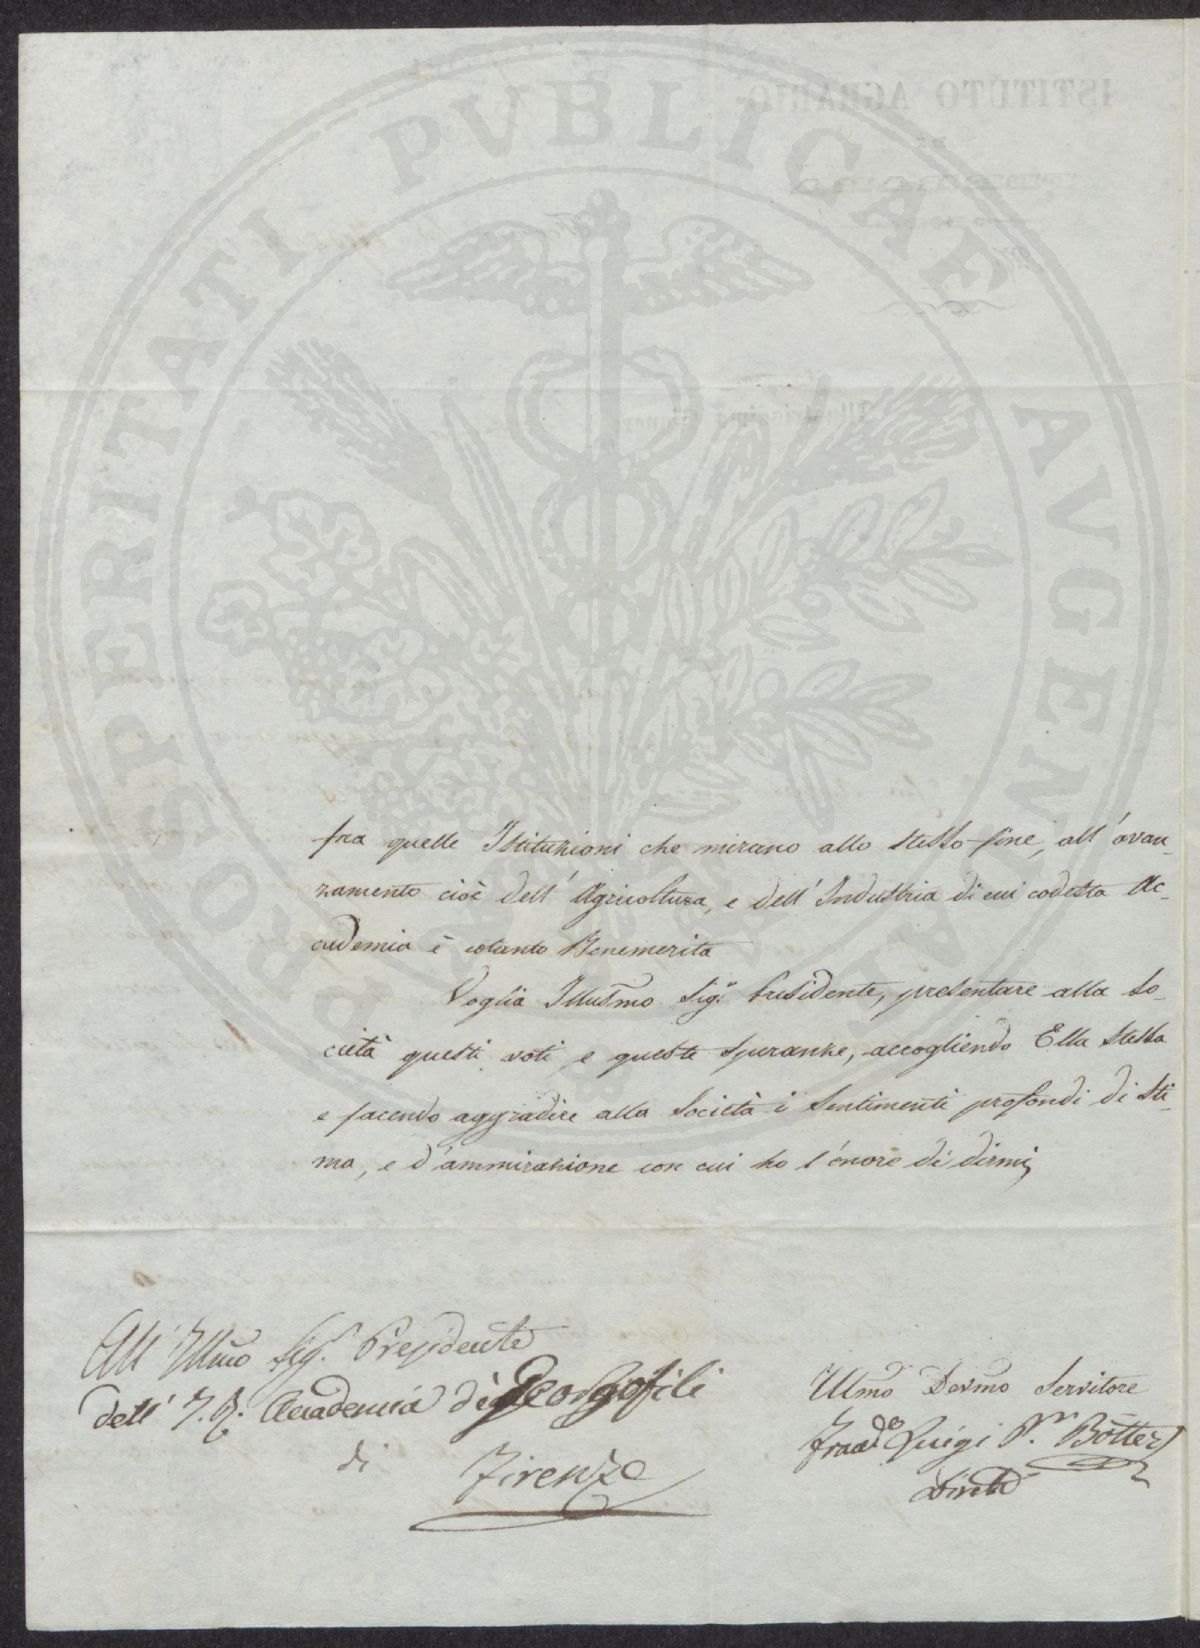 PROSPERITATI PVBLICAE AVGENDAE
fra quelle Istituzioni che mirano allo stesso fine, all' avan-
zamento cioè dell' Agricoltura, e dell' Industria di cui codesta Ac-
cademia è cotanto Benemerita
Voglia Illusmo Sigr Presidente, presentare alla So-
cietà questi voti, e queste speranze, accogliendo Ella stessa
e facendo aggradire alla Società i sentimenti profondi di sti-
ma, e d'ammirazione con cui ho l'onore di dirmi,
All' Illmo Sigr Presidente
dell' I. R. Accademia di Georgofili
di Firenze
Ulmo Devmo Servitore
Luigi Botter